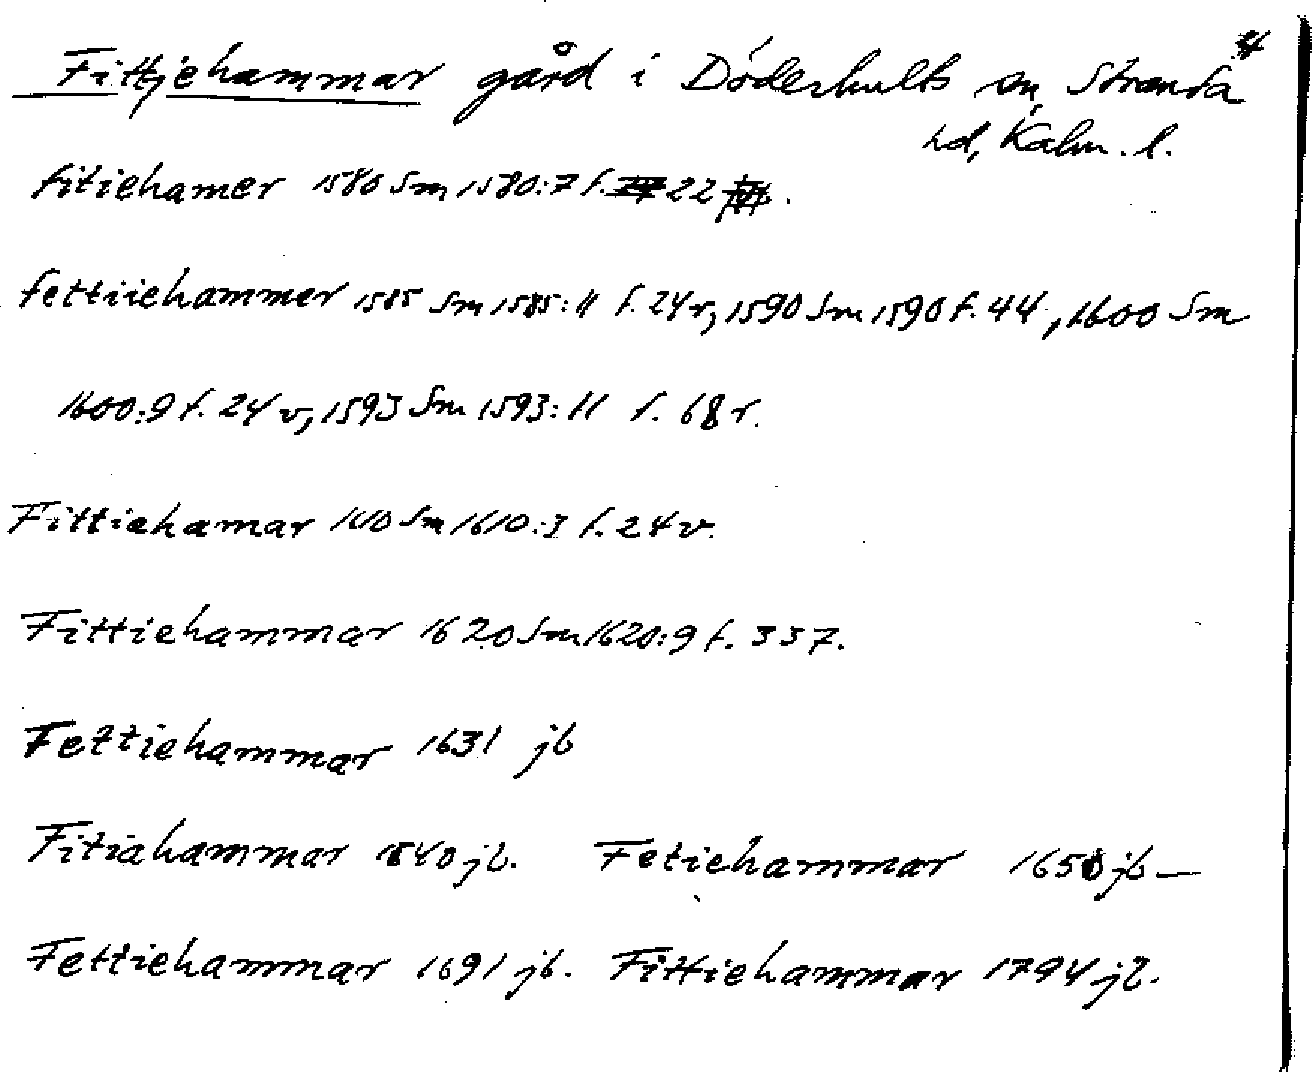 Fittjehammar gård i Döderhults sn, Stranda
hd, Kalm. l.
fitiehamer 1580 Sm 1580:7 f. 22 .
fettiiehammer 1585 Sm 1585:11 f. 24 r, 1590 Sm 1590 f. 44, 1600 Sm
1600:9 f. 24 v, 1593 Sm 1593:11 f. 68 r.
Fittiehamar 1610 Sm 1610:3 f. 24 v.
Fittiehammar 1620 Sm 1620:9 f. 337.
Fettiehammar 1631 jb
Fitiahammar 1640 jb. Fetiehammar 1650 jb —
Fettiehammar 1691 jb. Fittiehammar 1794 jb.